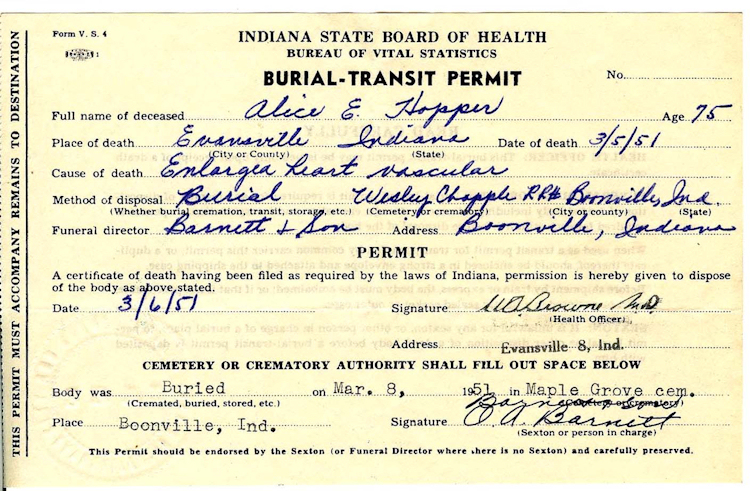 Form V. S. 4
INDIANA STATE BOARD OF HEALTH
BUREAU OF VITAL STATISTICS
BURIAL-TRANSIT PERMIT
No.
Full name of deceased Alice E. Hopper Age 75
Place of death Evansville Indiana Date of death 3/5/51
(City or County) (State)
Cause of death Enlarged heart vascular
Method of disposal Burial Wesley Chapple R.R# Boonville, Ind.
(Whether burial, cremation, transit, storage, etc.) (Cemetery or crematory) (City or county) (State)
Funeral director Barnett & Son Address Boonville, Indiana
PERMIT
A certificate of death having been filed as required by the laws of Indiana, permission is hereby given to dispose
of the body as above stated.
Date 3/6/51 Signature W.D. Browne M.D.
(Health Officer)
Address Evansville 8, Ind.
CEMETERY OR CREMATORY AUTHORITY SHALL FILL OUT SPACE BELOW
Body was Buried on Mar. 8, 1951 in Maple Grove cem.
(Cremated, buried, stored, etc.) (Cemetery or crematory)
Place Boonville, Ind. Signature A. Barnett
(Sexton or person in charge)
This Permit should be endorsed by the Sexton (or Funeral Director where there is no Sexton) and carefully preserved.
THIS PERMIT MUST ACCOMPANY REMAINS TO DESTINATION